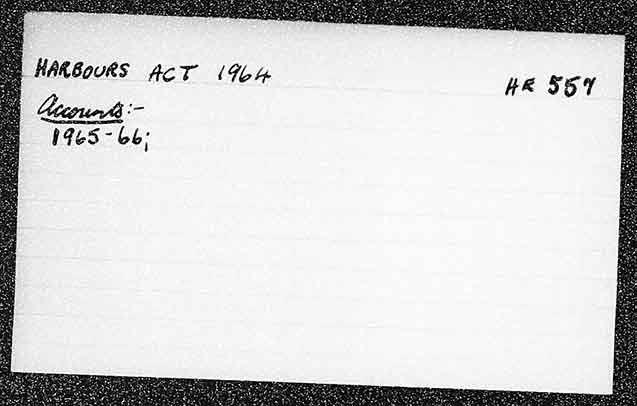 HARBOURS ACT 1964
HE 557
Accounts:-
1965-66;